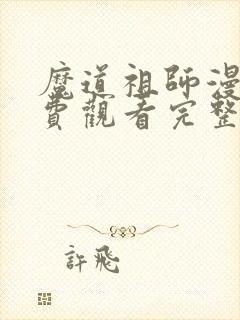 魔道祖師漫
費觀看完整
許飛